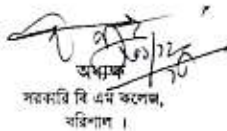 ৩১/১২
অধ্যক্ষ
সরকারি বি এম কলেজ,
বরিশাল ।